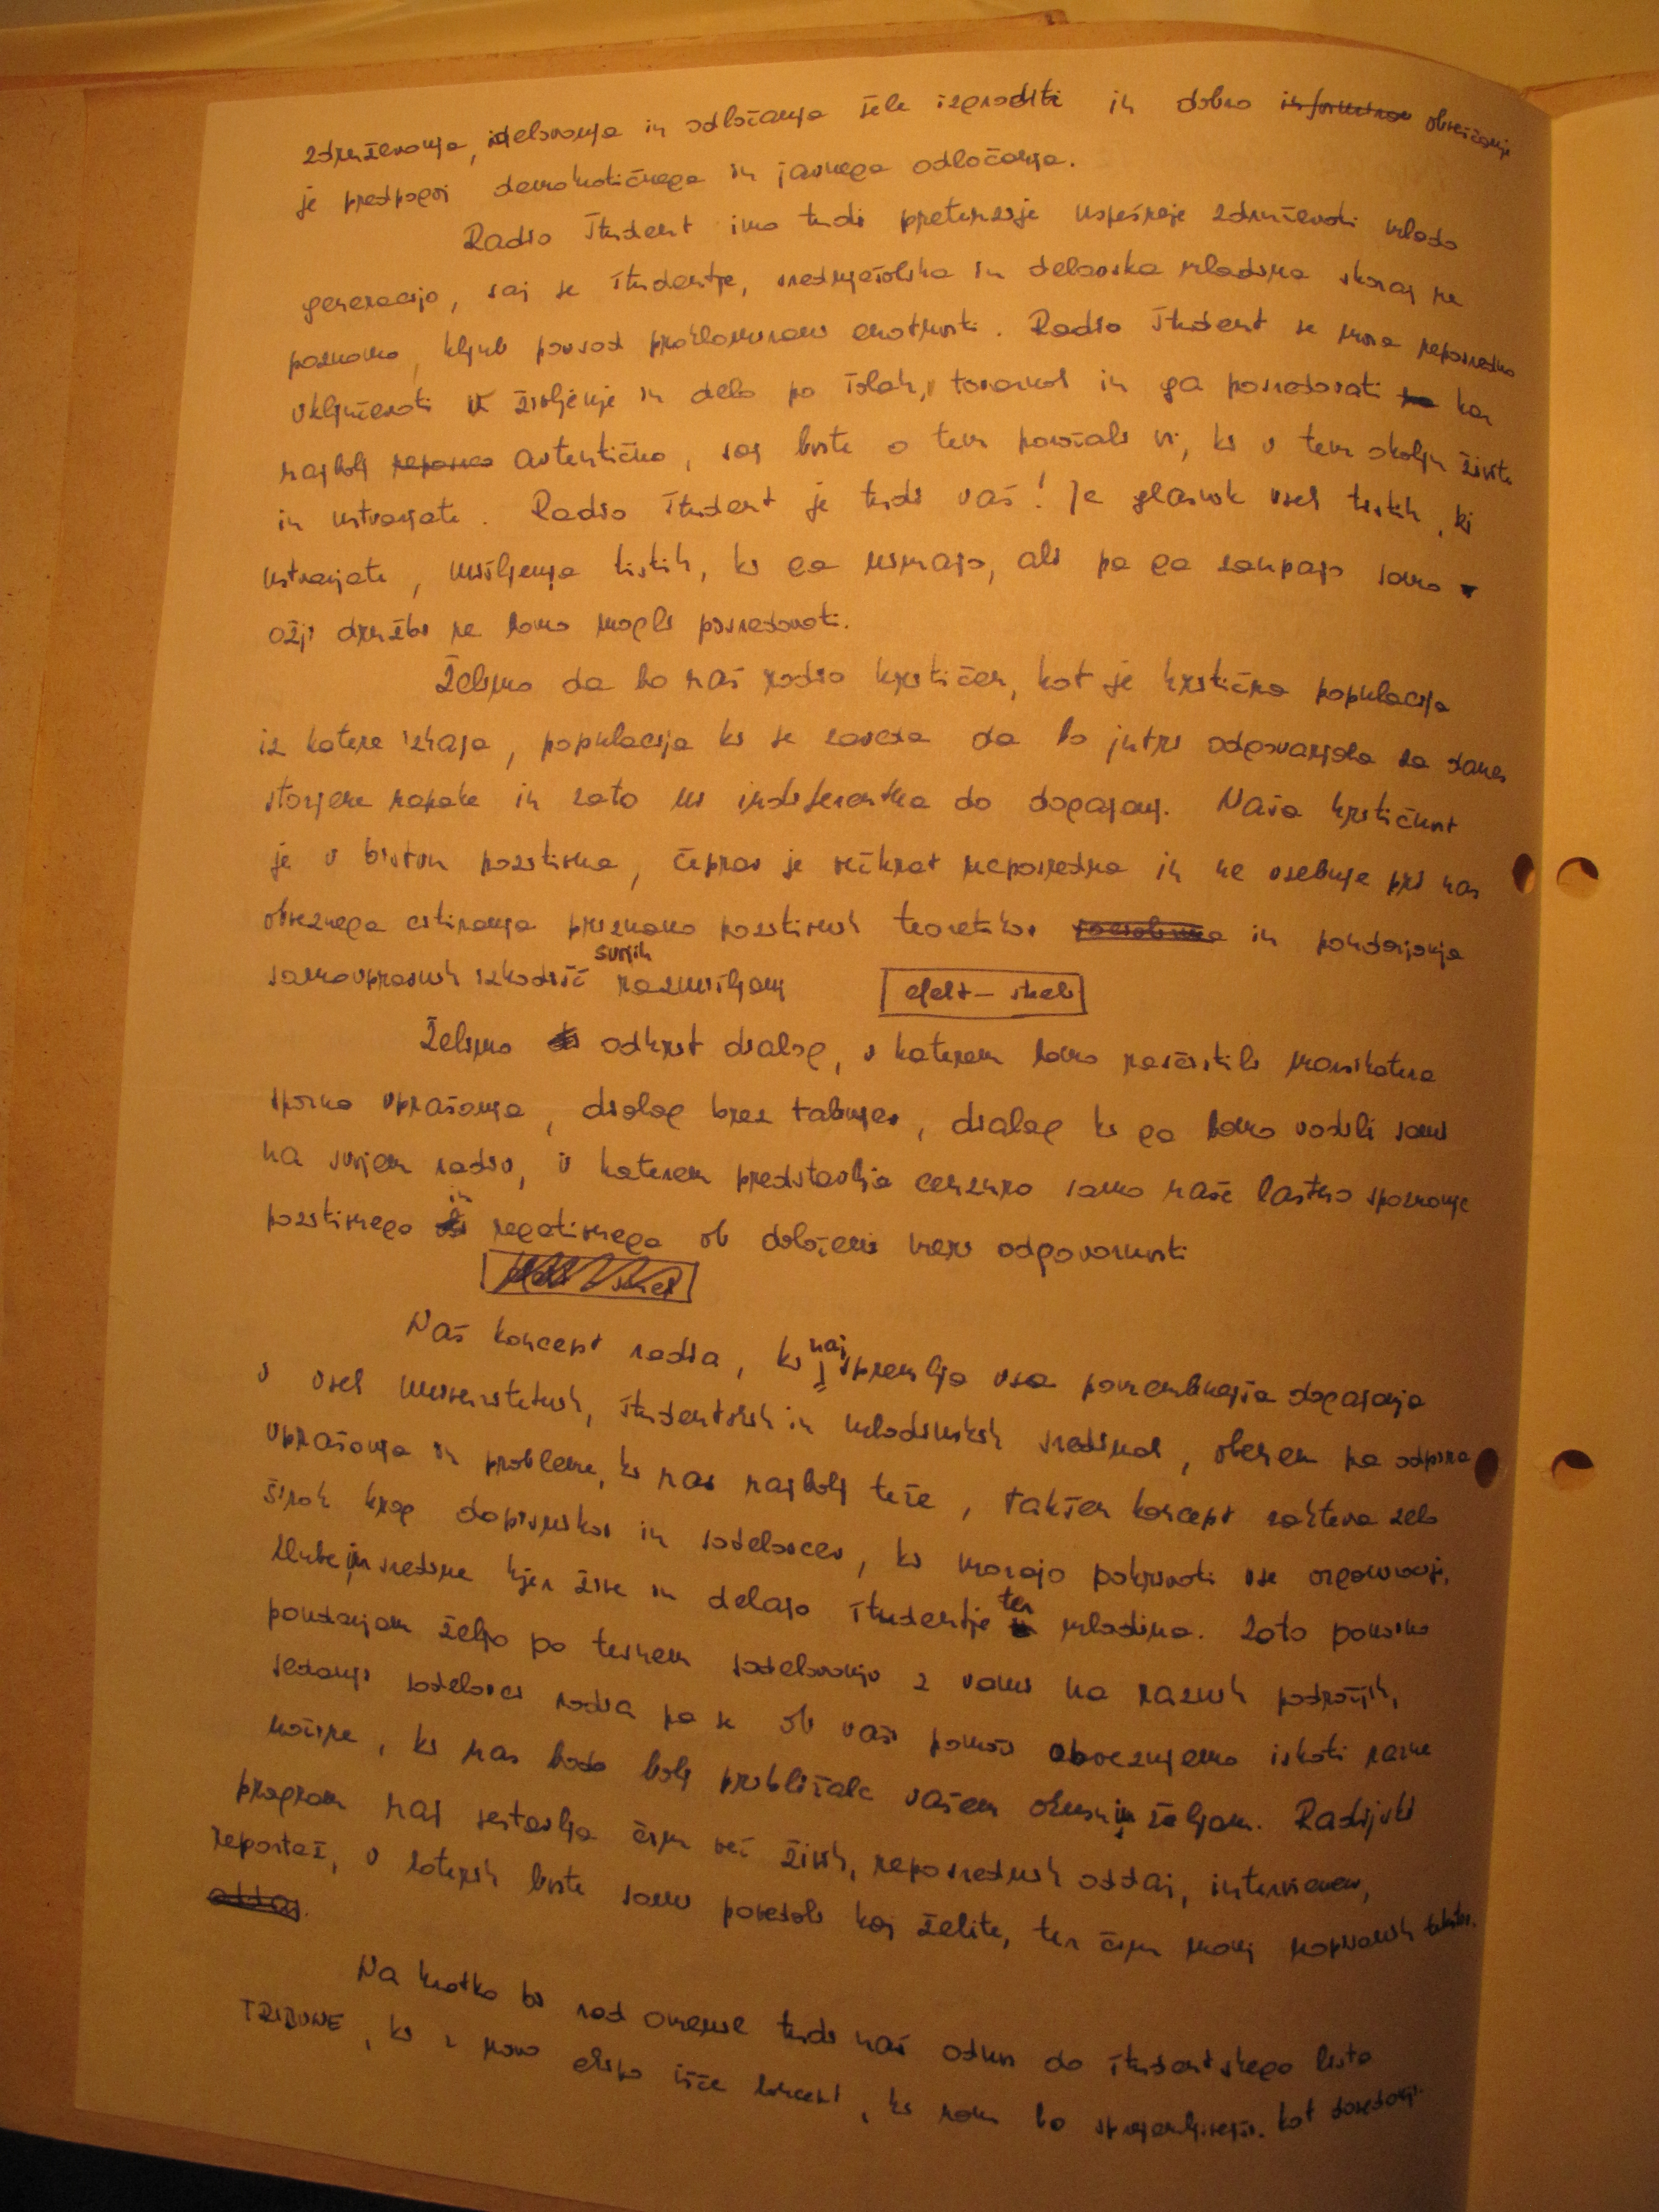 združevanja, delovanja in odločanja šele izgraditi in dobro obveščanje
je predpogoj demokratičnega in javnega odločanja.
Radio Študent ima tudi pretenzije uspešneje združevati mlado
generacijo, saj se študentje, srednješolska in delavska mladina skoraj ne
poznamo, kljub povsod proklamirani enotnosti. Radio Študent se mora neposredno
vključevati v življenje in delo po šolah, tovarnah in ga posredovati kar
najbolj avtentično, saj boste o tem poročali vi, ki v tem okolju živite
in ustvarjate. Radio Študent je tudi vaš! Je glasnik vseh tistih, ki
ustvarjate, mišljenja tistih, ki ga nimajo, ali pa ga zaupajo samo
ožji družbi ne bomo mogli posredovati.
Želimo da bo naš radio kritičen, kot je kritična populacija
iz katere izhaja, populacija ki se zaveda da bo jutri odgovarjala za danes
storjene napake in zato ni indiferentna do dogajanj. Naša kritičnost
je v bistvu pozitivna, čeprav je večkrat neposredna in ne vsebuje pri nas
obveznega citiranja priznano pozitivnih teoretikov in poudarjanja
samoupravnih izhodišč svojih razmišljanj
efekt – skeč
Želimo odkrit dialog, v katerem bomo razčistili marsikatera
sporna vprašanja, dialog brez tabujev, dialog ki ga bomo vodili sami
na svojem radiu, v katerem predstavlja cenzuro samo naše lastno spoznanje
pozitivnega in negativnega ob določeni meri odgovornosti
Naš koncept radia, ki naj spremlja vsa pomembnejša dogajanja
v vseh univerzitetnih, študentskih in mladinskih sredinah, obenem pa odpira
vprašanja in probleme, ki nas najbolj teže, takšen koncept zahteva zelo
širok krog dopisnikov in sodelavcev, ki morajo pokrivati vse organizacije,
klube in sredine kjer žive in delajo študentje ter mladina. Zato ponovno
poudarjam željo po tesnem sodelovanju z vami na raznih področjih,
sedanji sodelavci radia pa se ob vaši pomoči obvezujemo iskati razne
načine, ki nas bodo bolj približale vašem okusu in željam. Radijski
program naj sestavlja čim več živih, neposrednih oddaj, intervjuev,
reportaž, v katerih boste sami povedali kaj želite, ter čim manj napisanih tekstov.
Na kratko bi rad omenil tudi naš odnos do študentskega lista
TRIBUNE, ki z novo ekipo išče koncept, ki nam bo sprejemljivejši kot dosedanji